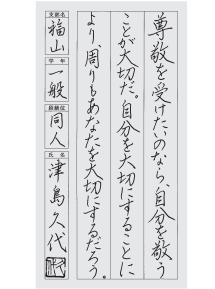 尊敬を受けたいのなら、自分を敬う
ことが大切だ。自分を大切にすることに
より、周りもあなたを大切にするだろう。
支部名
福山
学年
一般
段級位
同人
氏名
津島久代